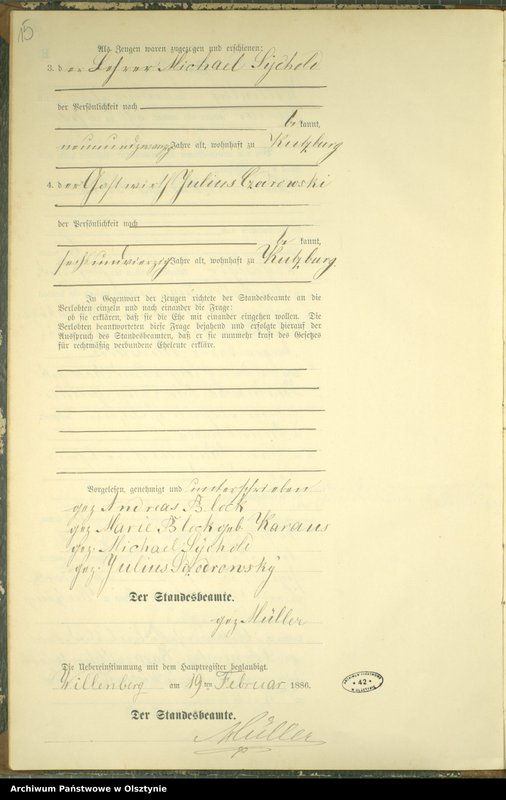 15
Als Zeugen waren zugezogen und erschienen:
3. der Lehrer Michael
der Persönlichkeit nach
be kannt,
neunundzwanzig Jahre alt, wohnhaft zu Kutzburg
4. der Gastwirth Julius Czodrowski
der Persönlichkeit nach
be kannt,
sechsundvierzig Jahre alt, wohnhaft zu Kutzburg
In Gegenwart der Zeugen richtete der Standesbeamte an die
Verlobten einzeln und nach einander die Frage:
ob sie erklären, daß sie die Ehe mit einander eingehen wollen. Die
Verlobten beantworteten diese Frage bejahend und erfolgte hierauf der
Ausspruch des Standesbeamten, daß er sie nunmehr kraft des Gesetzes
für rechtmäßig verbundene Eheleute erkläre.
Vorgelesen, genehmigt und unterschrieben
gez Andreas Block
gez Marie Block geb Karaus
gez. Michael
gez. Julius
Der Standesbeamte.
gez Müller
Die Uebereinstimmung mit dem Hauptregister beglaubigt.
Willenberg am 19ten Februar 1886.
Der Standesbeamte.
Müller
ARCHIWUM PAŃSTWOWE
* 42 *
W OLSZTYNIE
Archiwum Państwowe w Olsztynie